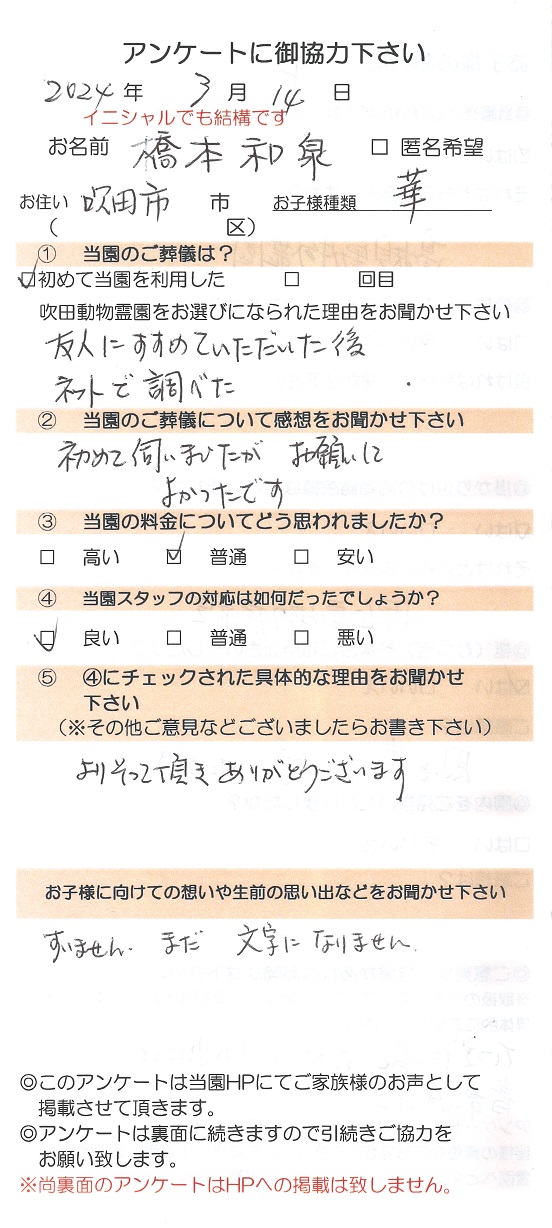 アンケートに御協力下さい
2024 年 3 月 14 日
イニシャルでも結構です
お名前 橋本和泉 □ 匿名希望
お住い 吹田市 市 お子様種類 華
( 区)
① 当園のご葬儀は?
☑初めて当園を利用した □ 回目
吹田動物霊園をお選びになられた理由をお聞かせ下さい
友人にすすめていただいた後
ネットで調べた
② 当園のご葬儀について感想をお聞かせ下さい
初めて伺いましたが お願いして
よかったです
③ 当園の料金についてどう思われましたか?
□ 高い ☑ 普通 □ 安い
④ 当園スタッフの対応は如何だったでしょうか?
☑ 良い □ 普通 □ 悪い
⑤ ④にチェックされた具体的な理由をお聞かせ
下さい
(※その他ご意見などございましたらお書き下さい)
よりそって頂き ありがとうございます
お子様に向けての想いや生前の思い出などをお聞かせ下さい
すいません. まだ 文字になりません.
◎このアンケートは当園HPにてご家族様のお声として
掲載させて頂きます。
◎アンケートは裏面に続きますので引続きご協力を
お願い致します。
※尚裏面のアンケートはHPへの掲載は致しません。